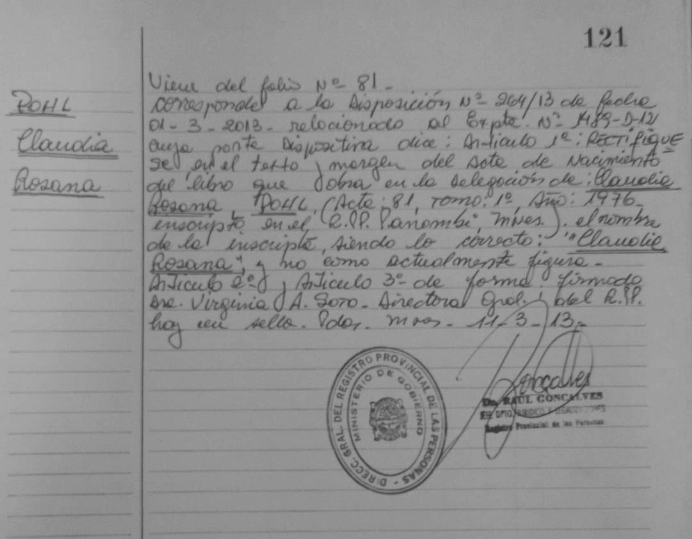 121
POHL
Claudia
Rosana
Viene del folio Nº 81.-
corresponde a la Disposición Nº 264/13 de fecha
01-3-2013- relacionado al Expte. Nº 1489-D-12
cuya parte Dispositiva dice: Articulo 1º: RECTIFIQUE
se en el texto y margen del acta de Nacimiento
del libro que obra en la delegación de: Claudia
Rosana POHL, (Acta: 81, Tomo: 1º, Año: 1976-
inscripta en el R.P.P. Panambí, Mnes.). el nombre
de la inscripta, siendo lo correcto: "Claudia
Rosana", y no como actualmente figura.-
Articulo 2º y Articulo 3º de forma. firmado
Dra. Virginia A. Soro- Directora Gral. del R.P.P.
hay un sello. Pdas. Mnes.- 11-3-13.-
DIREC. GRAL. DEL REGISTRO PROVINCIAL DE LAS PERSONAS
MINISTERIO DE GOBIERNO
Goncalves
Dr. RAUL GONCALVES
Registro Provincial de las Personas